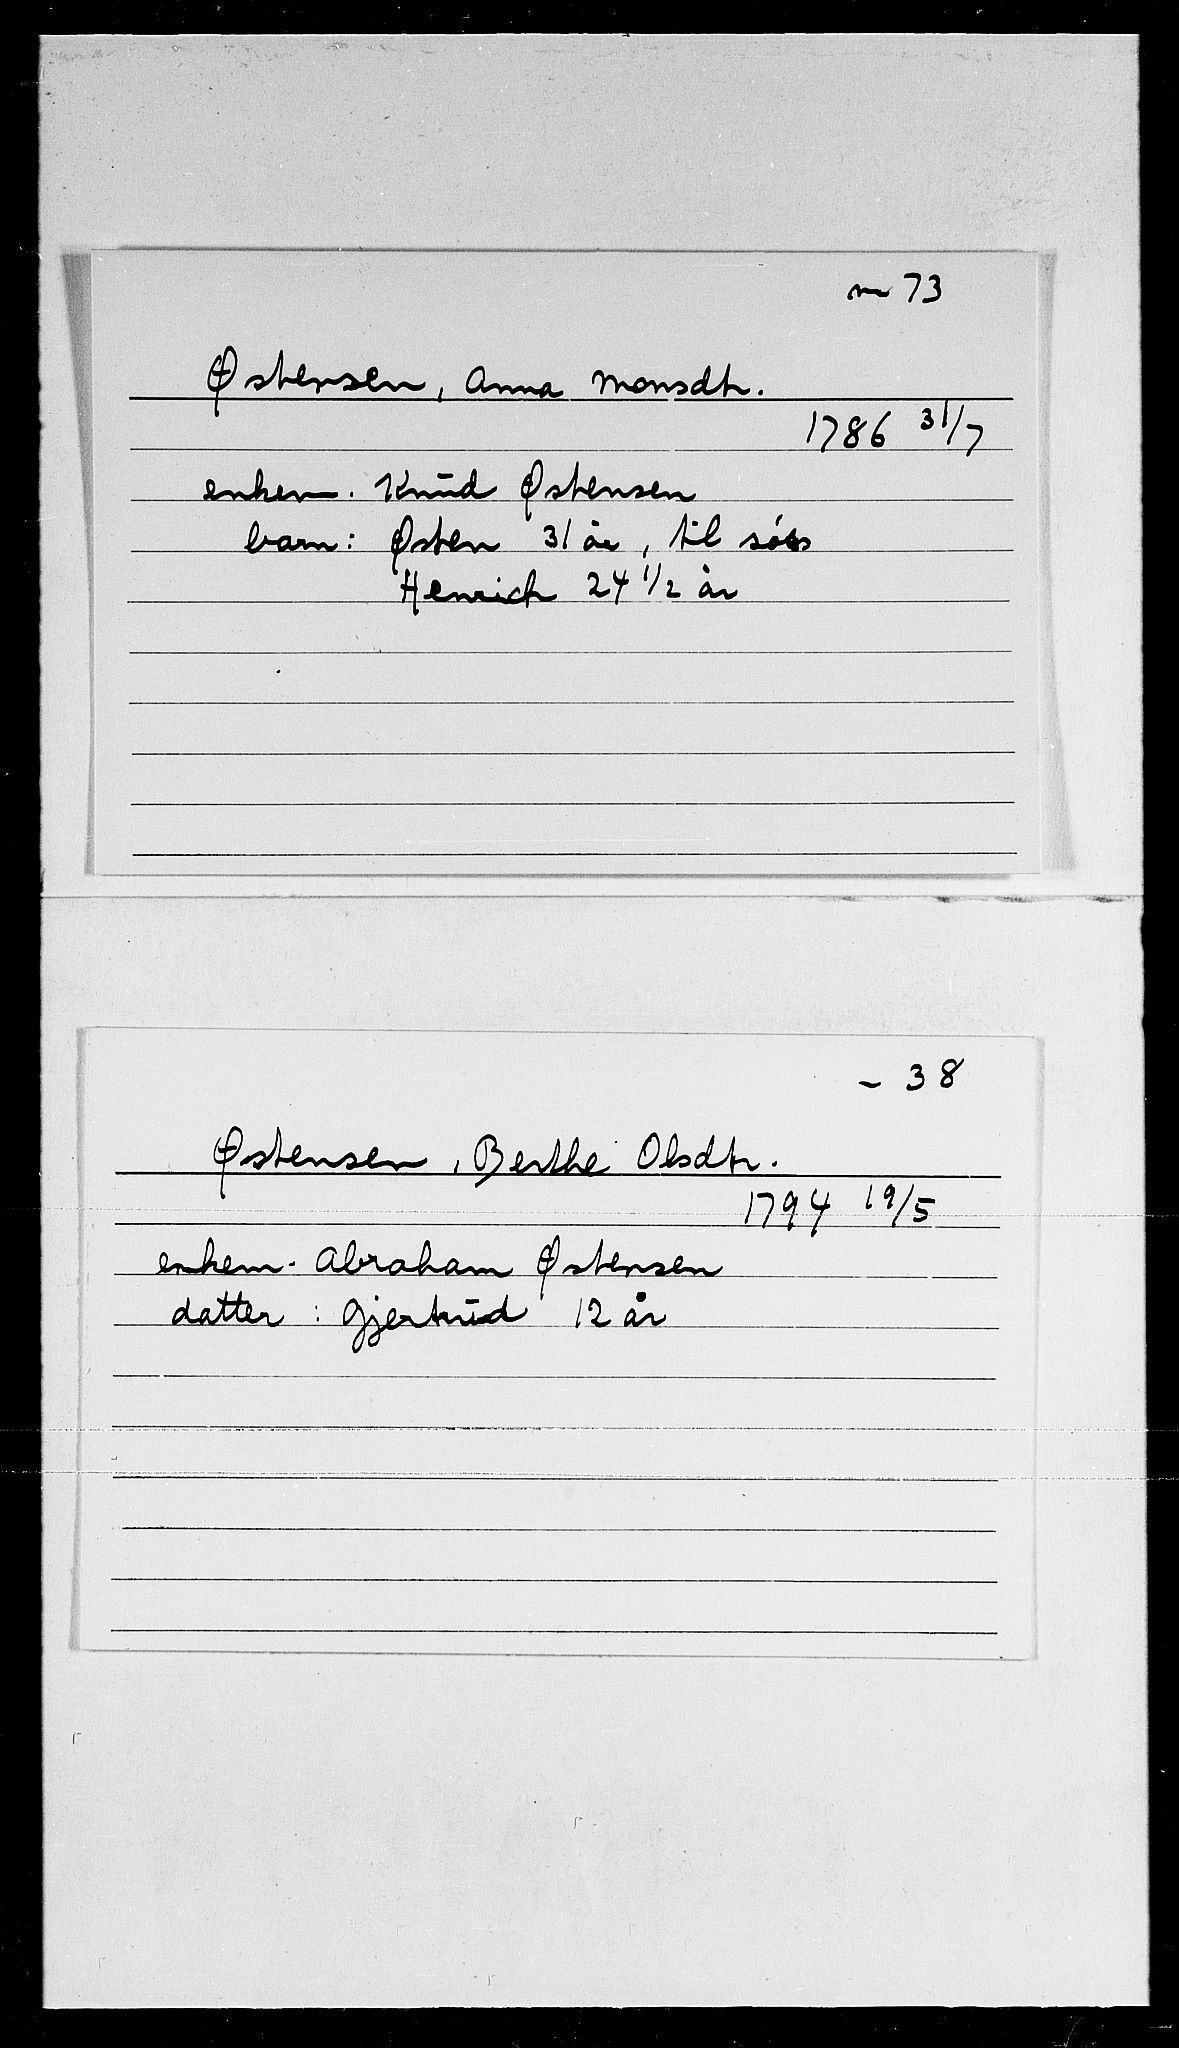 73
Østensen, Anna Monsdtr.
1786 31/7
enkem. Knūd Østensen
barn: Østen 31 år, til søes
Henrich 24 1/2 år
- 38
Østensen, Berthe Olsdtr.
1794 19/5
enkem. Abraham Østensen
datter: Gjertrūd 12 år